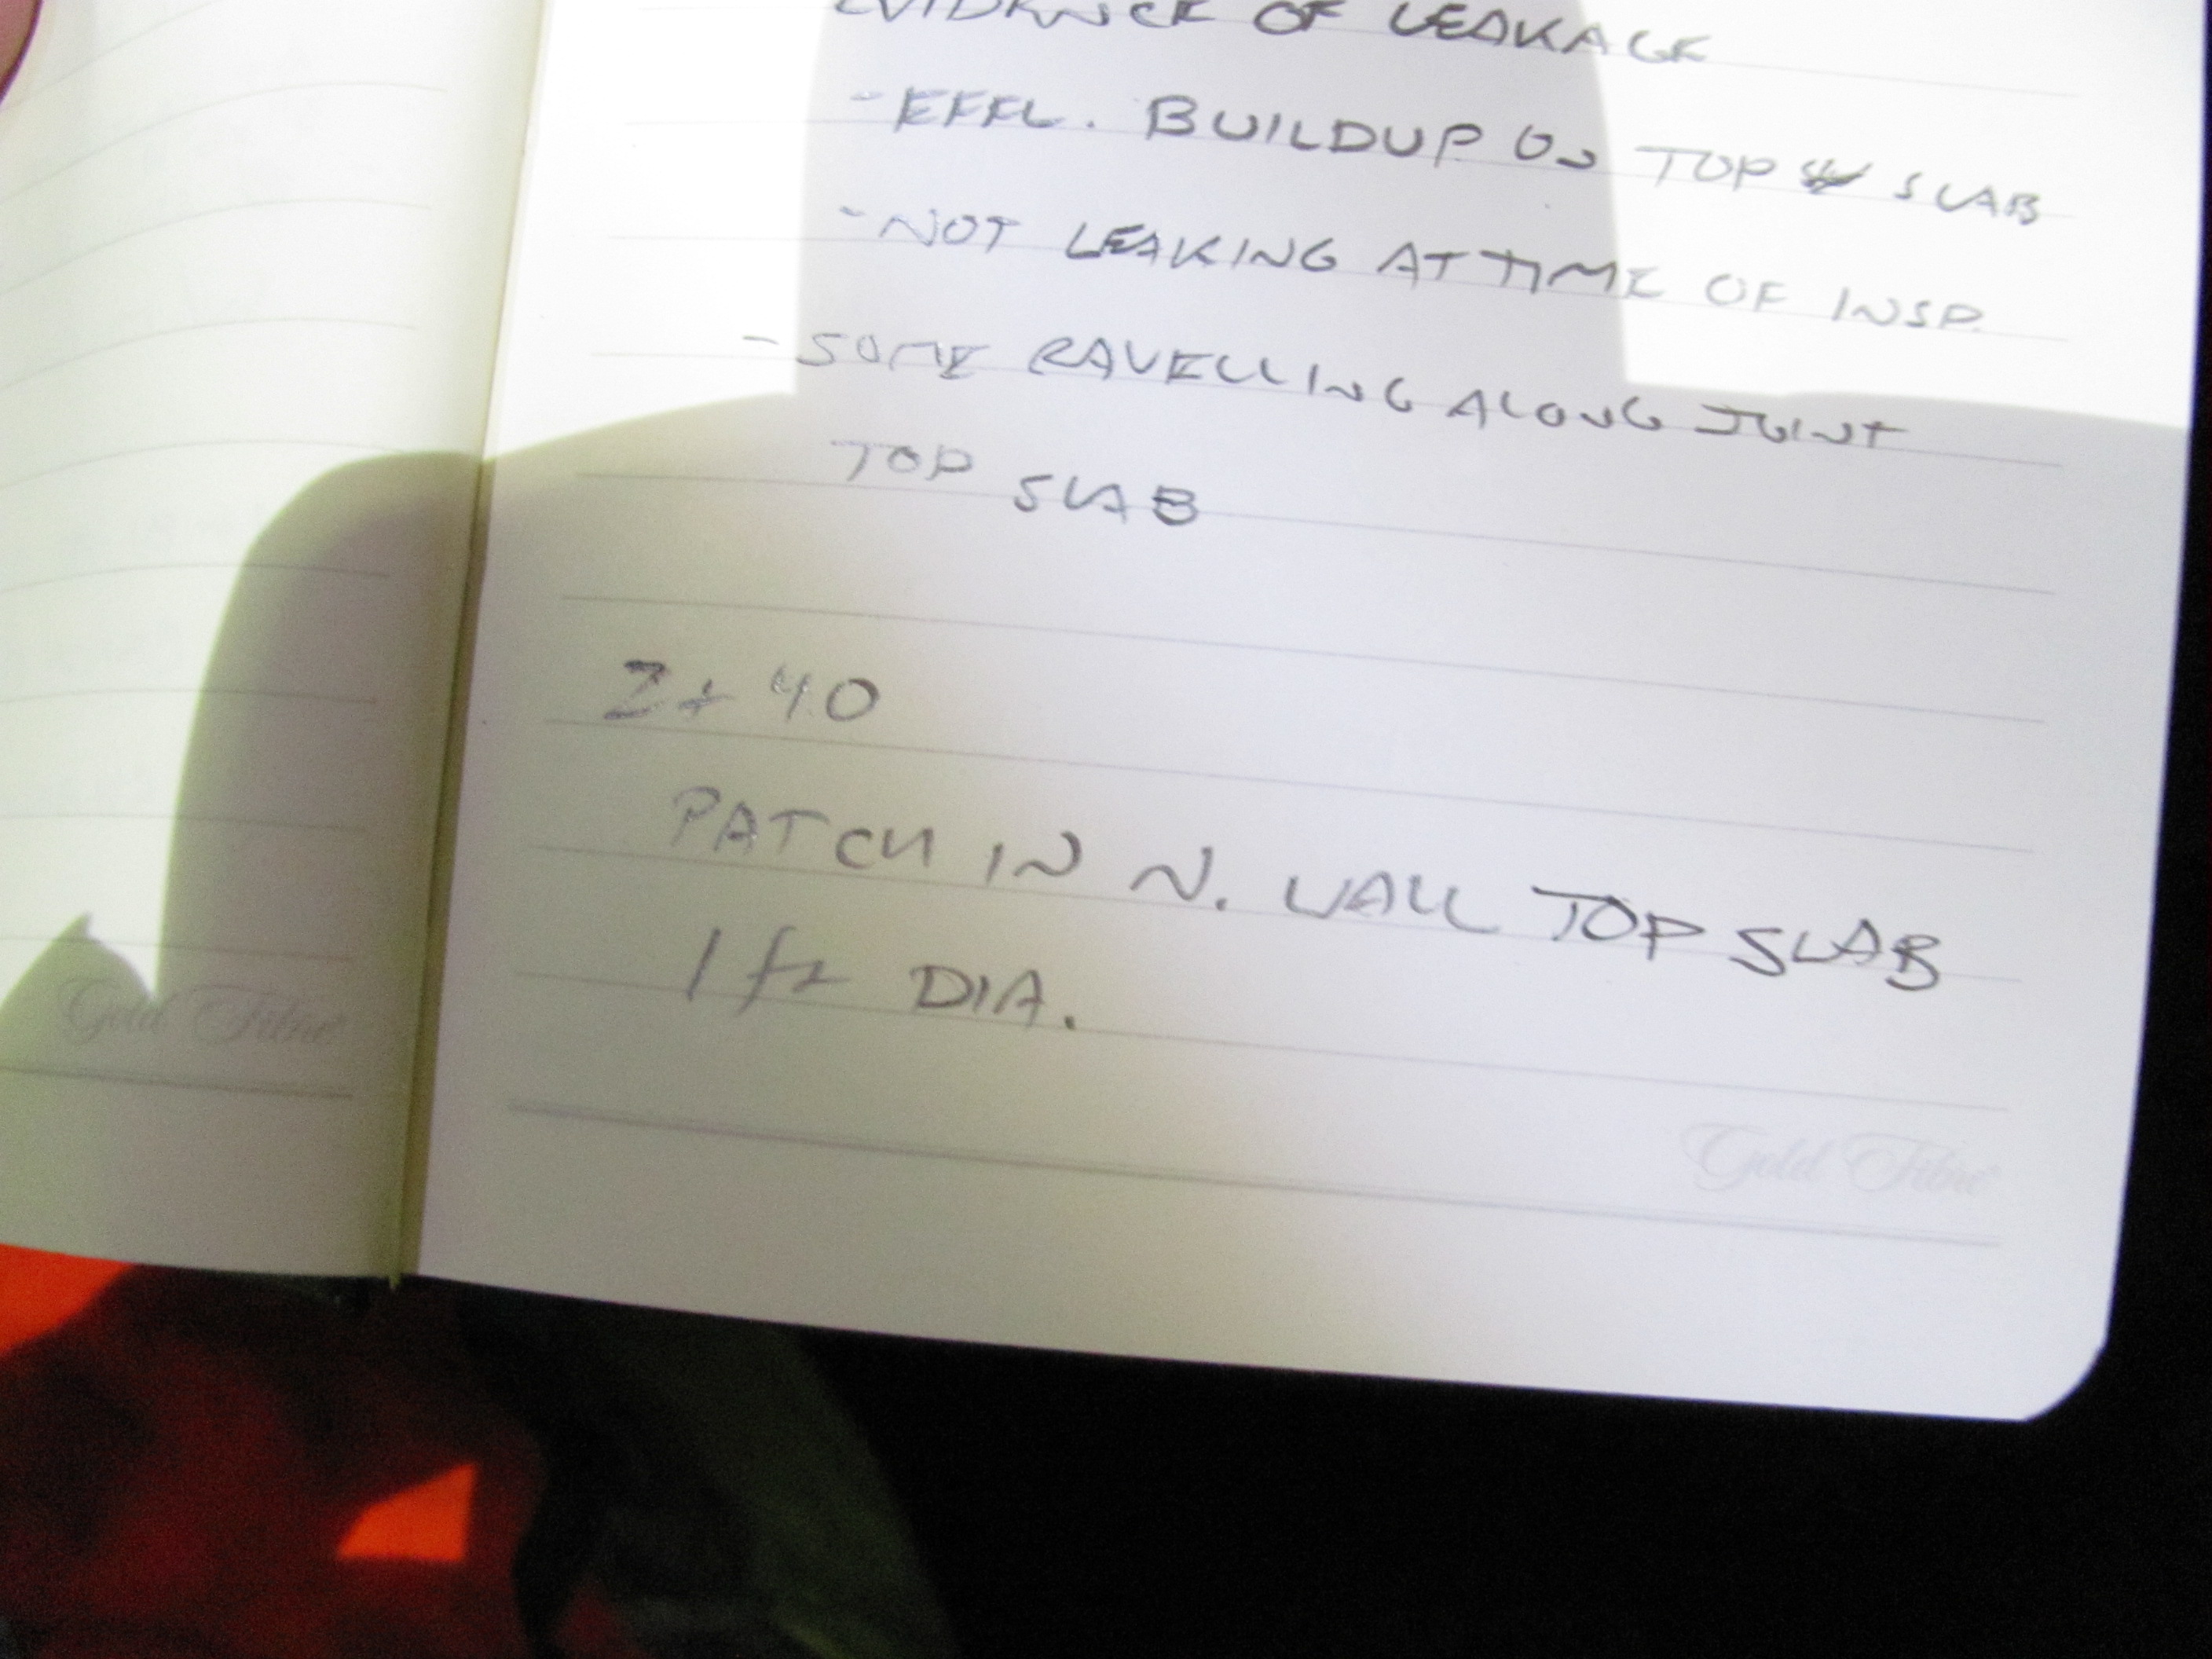 EVIDENCE OF LEAKAGE
- EFFL. BUILDUP ON TOP SLAB
- NOT LEAKING AT TIME OF INSP.
- SOME RAVELLING ALONG JOINT
TOP SLAB
2+40
PATCH IN N. WALL TOP SLAB
1 ft DIA.
Gold Fibre
Gold Fibre